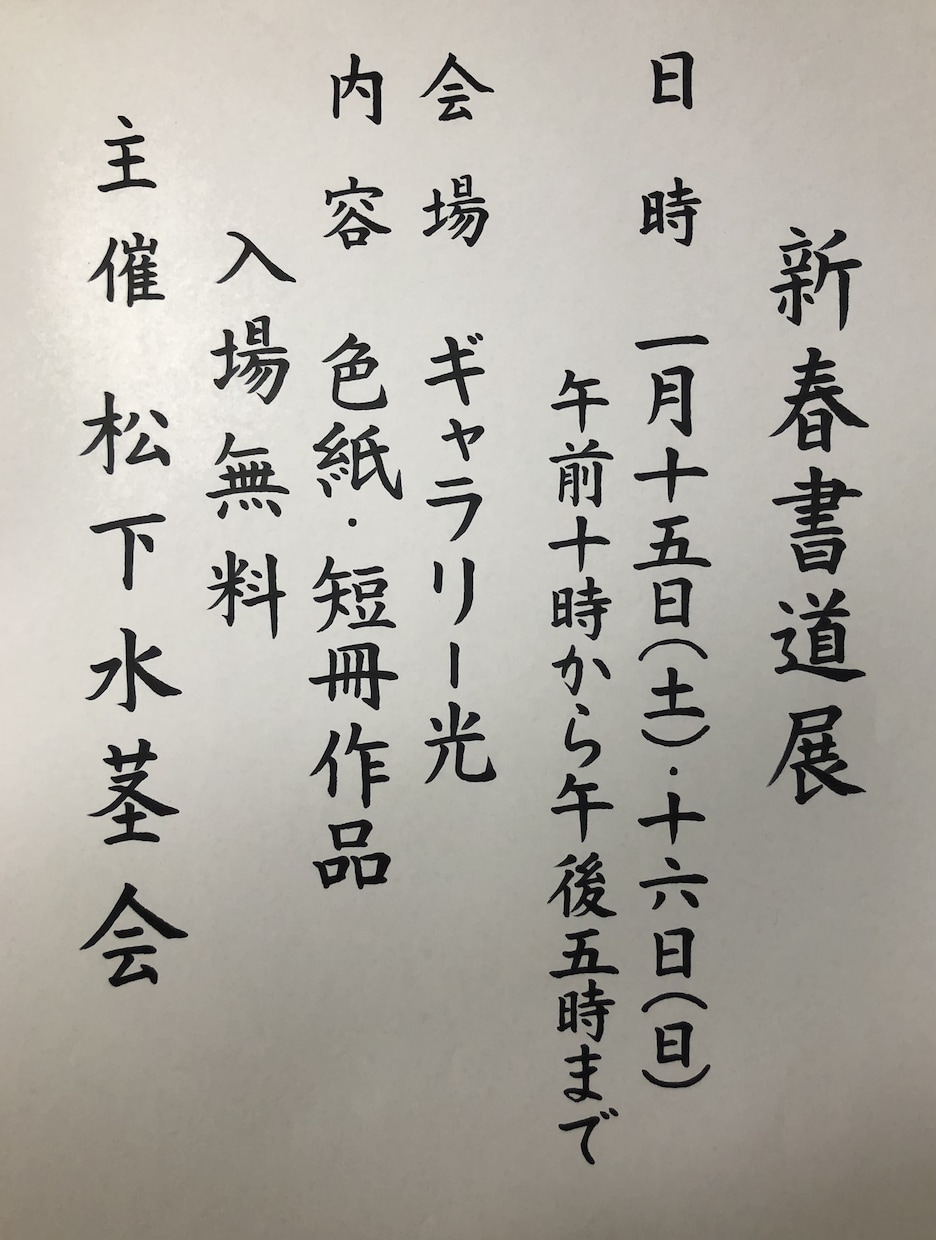 新春書道展
日時 一月十五日(土)・十六日(日)
午前十時から午後五時まで
会場 ギャラリー光
内容 色紙・短冊作品
入場無料
主催 松下水茎会